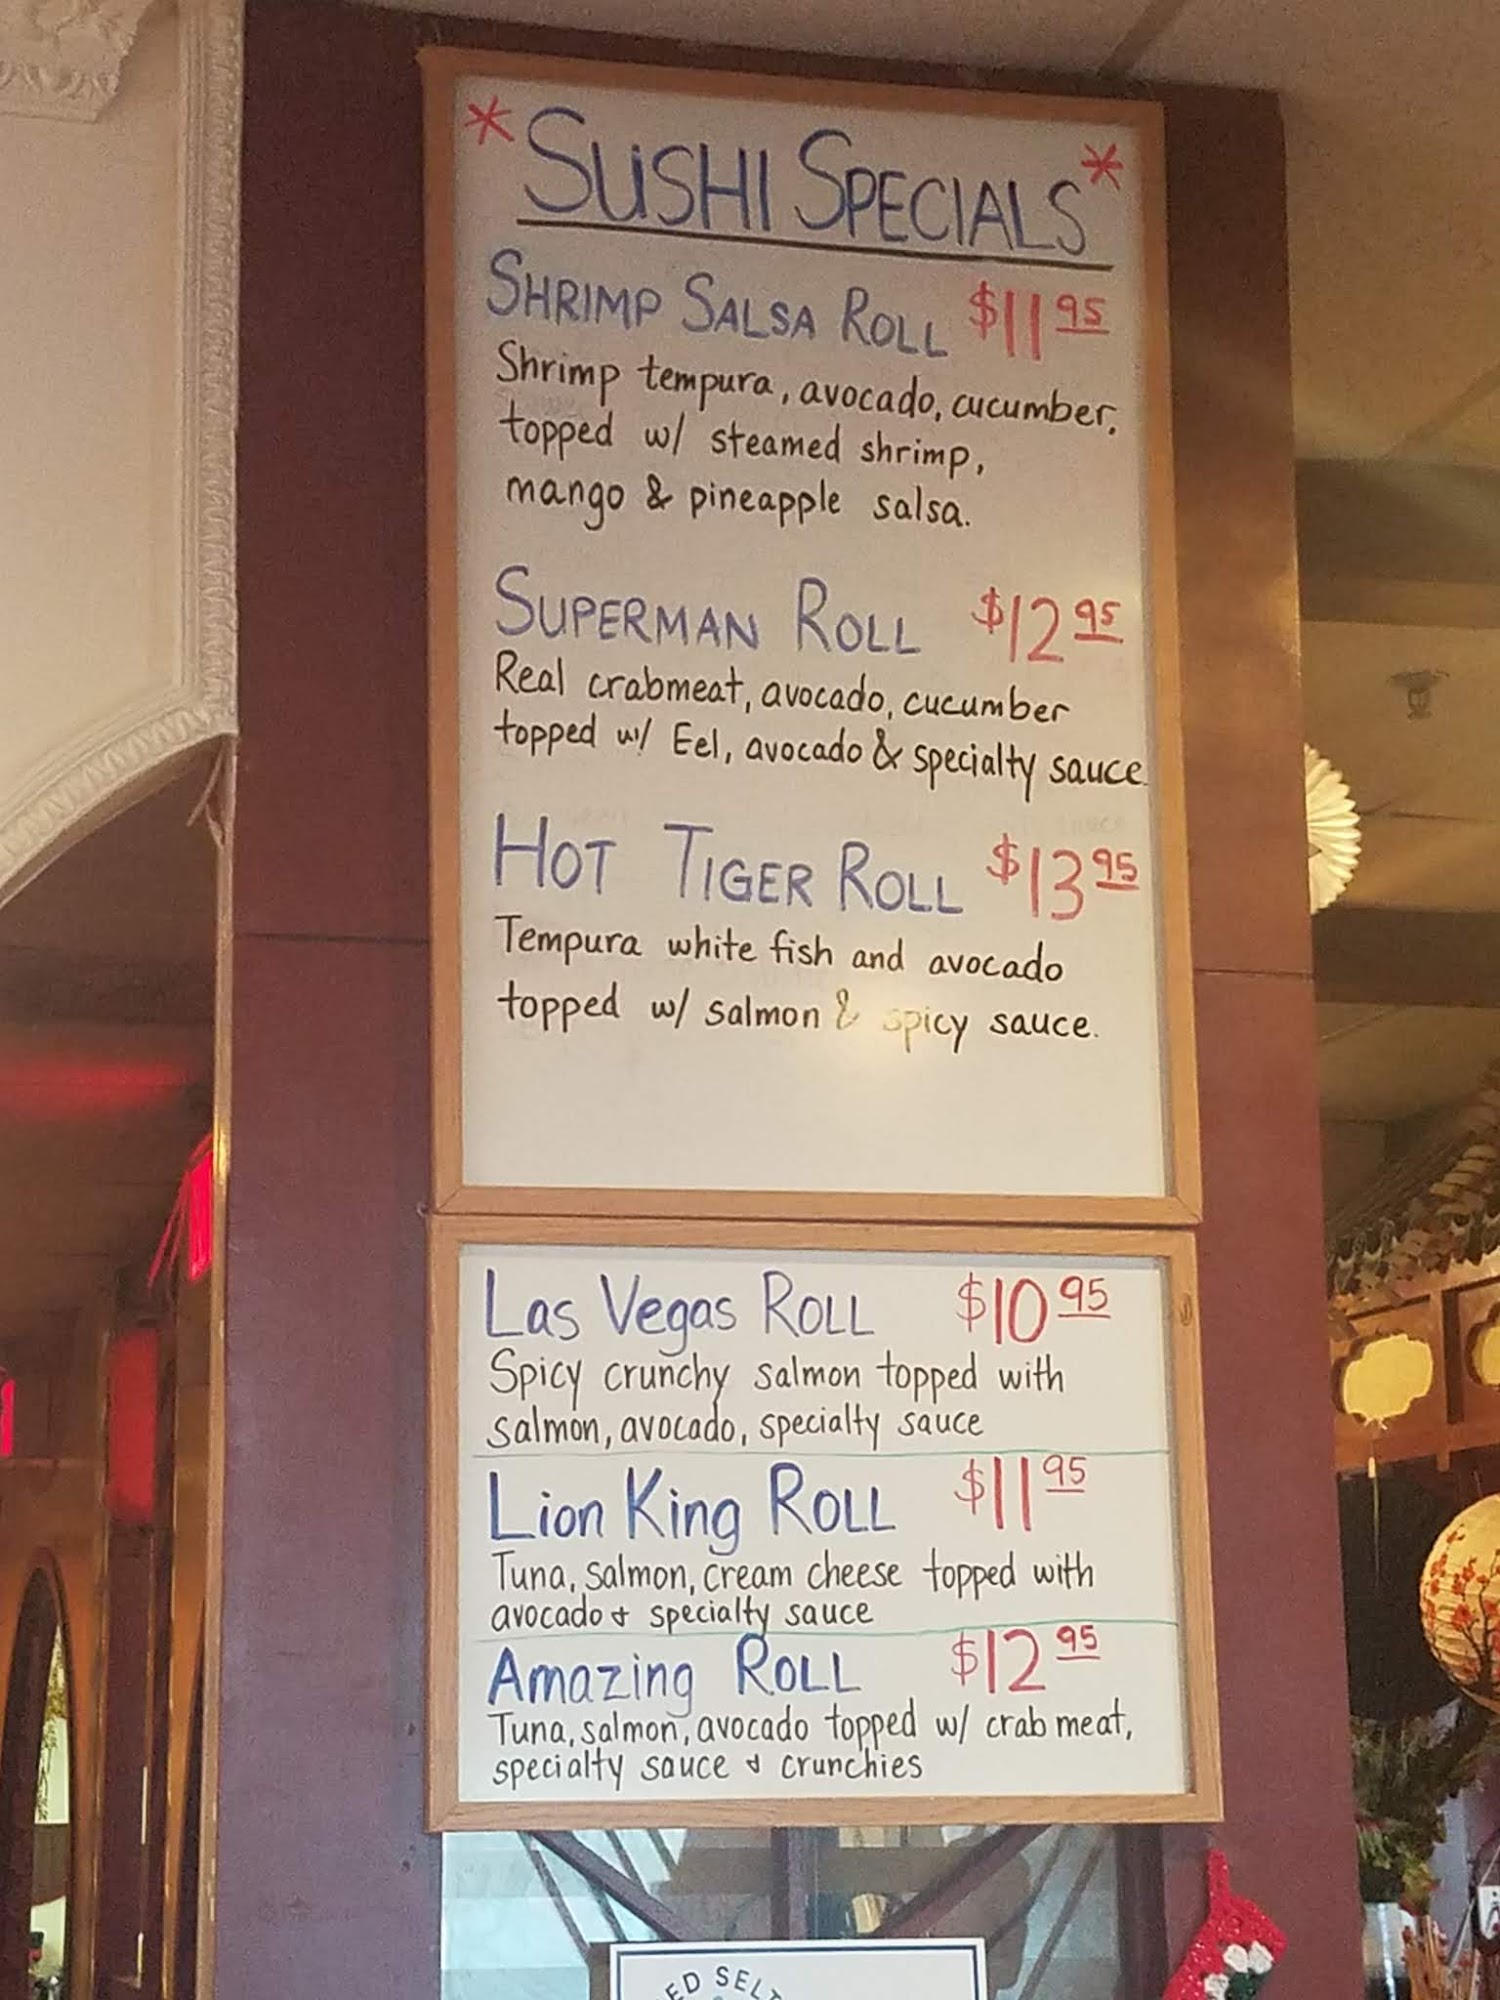 * SUSHI SPECIALS *
SHRIMP SALSA ROLL $11 95
Shrimp tempura, avocado, cucumber,
topped w/ steamed shrimp,
mango & pineapple salsa.
SUPERMAN ROLL $12 95
Real crabmeat, avocado, cucumber
topped w/ Eel, avocado & specialty sauce.
HOT TIGER ROLL $13 95
Tempura white fish and avocado
topped w/ salmon & spicy sauce.
Las Vegas ROLL $10 95
Spicy crunchy salmon topped with
salmon, avocado, specialty sauce
Lion King ROLL $11 95
Tuna, salmon, cream cheese topped with
avocado & specialty sauce
Amazing ROLL $12 95
Tuna, salmon, avocado topped w/ crab meat,
specialty sauce & crunchies